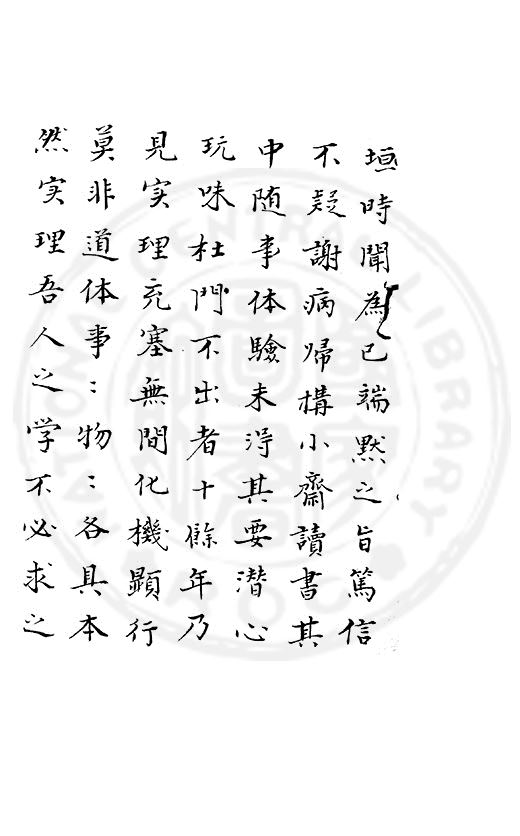 垣時聞為己端默之旨篤信
不疑謝病歸構小齋讀書其
中随事体驗未淂其要潜心
玩味杜門不出者十餘年乃
見実理充塞無間化機顯行
莫非道体事〻物〻各具本
然実理吾人之学不必求之
NATIONAL CENTRAL LIBRARY